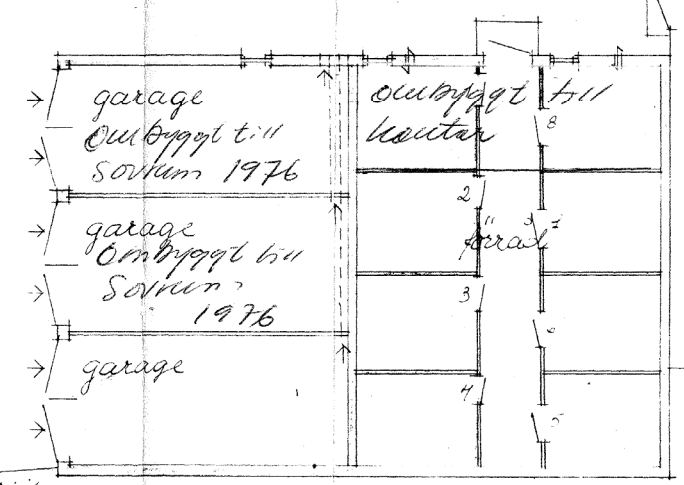 garage
Ombyggt till
Sovrum 1976
garage
Ombyggt till
Sovrum
1976
garage
Ombyggt till
kontor
8
2
7
förråd
3
6
4
5